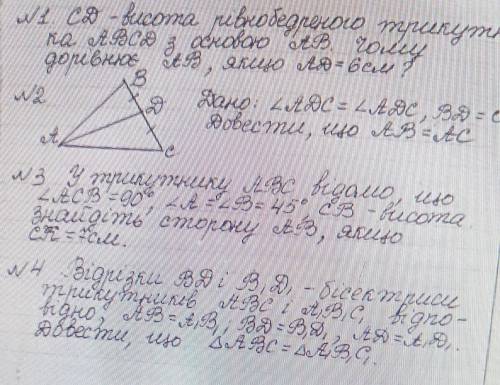 №1 СD - висота рівнобедреного трикутни
ка ABCD з основою AB. Чому
дорівнює AB, якщо AD=6см?
№2
B
D
A
C
Дано: ∠ADC=∠ADC, BD=C
Довести, що AB=AC
№3 У трикутнику ABC відомо, що
∠ACB=90°, ∠A=∠B=45°, CB - висота.
Знайдіть сторону AB, якщо
CK=7см.
№4 Відрізки BD і B₁D₁ - бісектриси
трикутників ABC і A₁B₁C₁ відпо-
відно, AB=A₁B₁, BD=B₁D₁, AD=A₁D₁.
Довести, що ΔABC=ΔA₁B₁C₁.